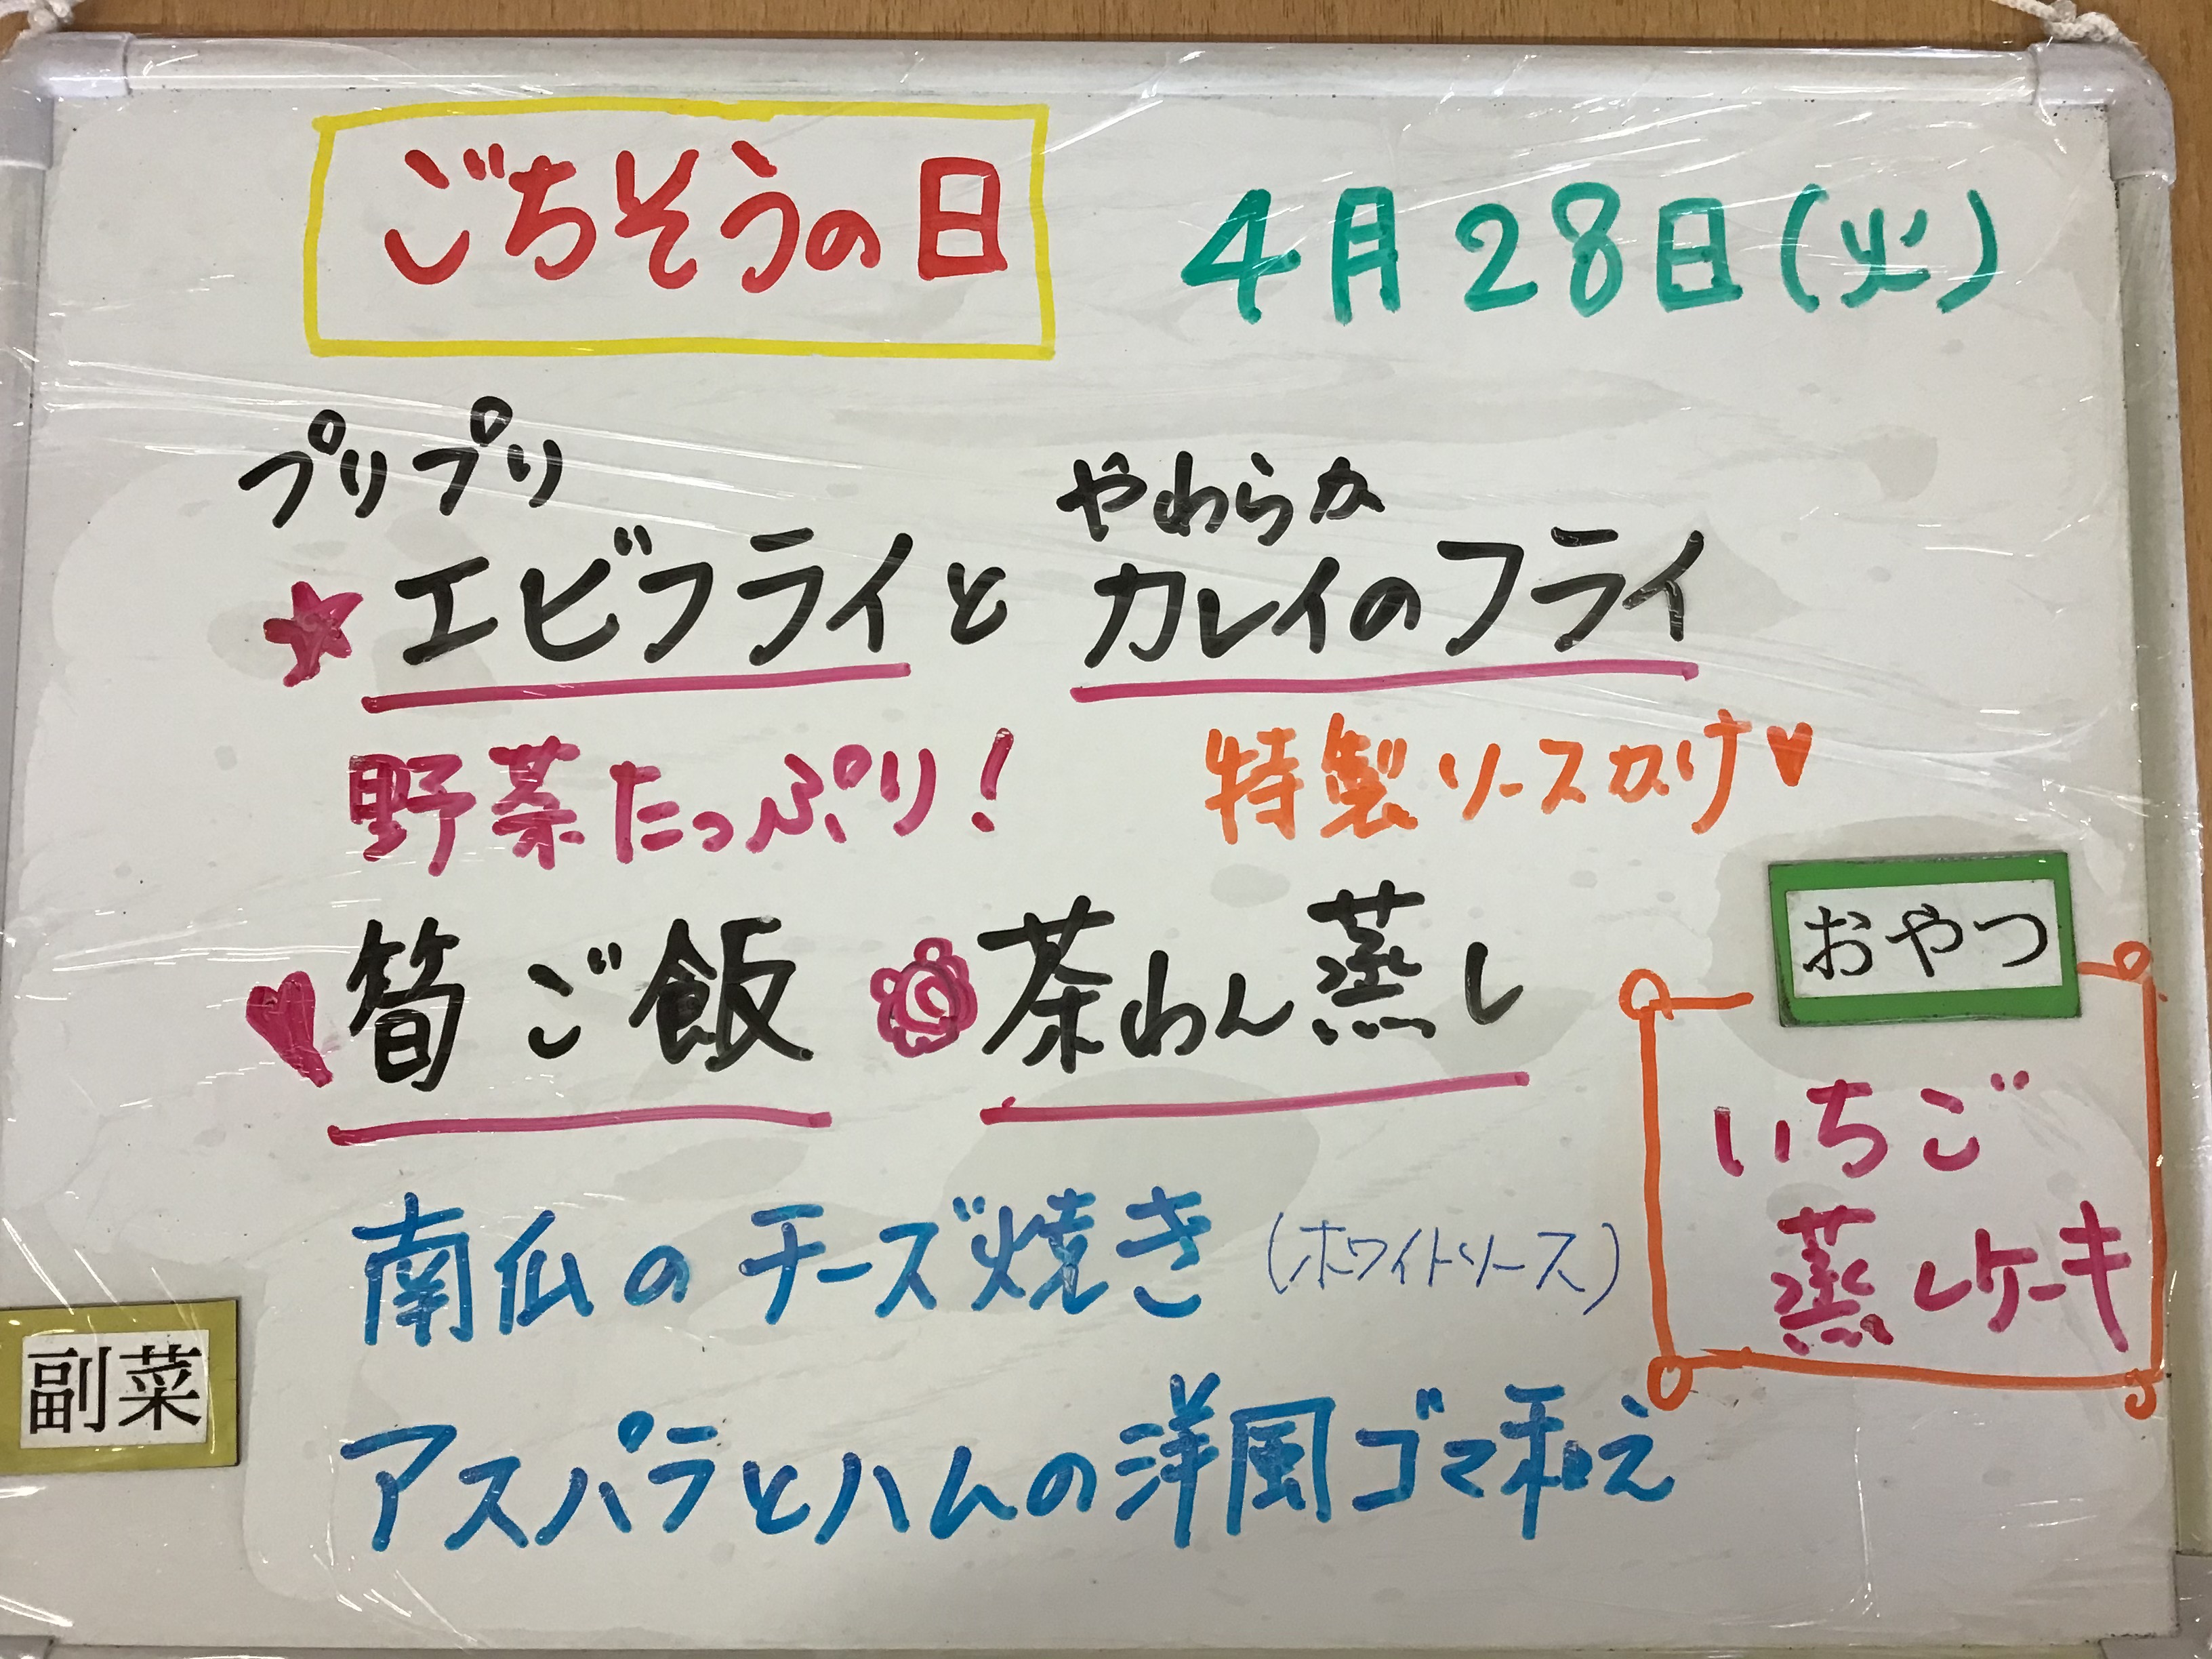 ごちそうの日
4月28日(火)
プリプリ やわらか
エビフライと カレイのフライ
野菜たっぷり! 特製ソースかけ♥
筍ご飯 茶わん蒸し
おやつ
いちご
蒸しケーキ
南瓜のチーズ焼き (ホワイトソース)
副菜
アスパラとハムの洋風ゴマ和え